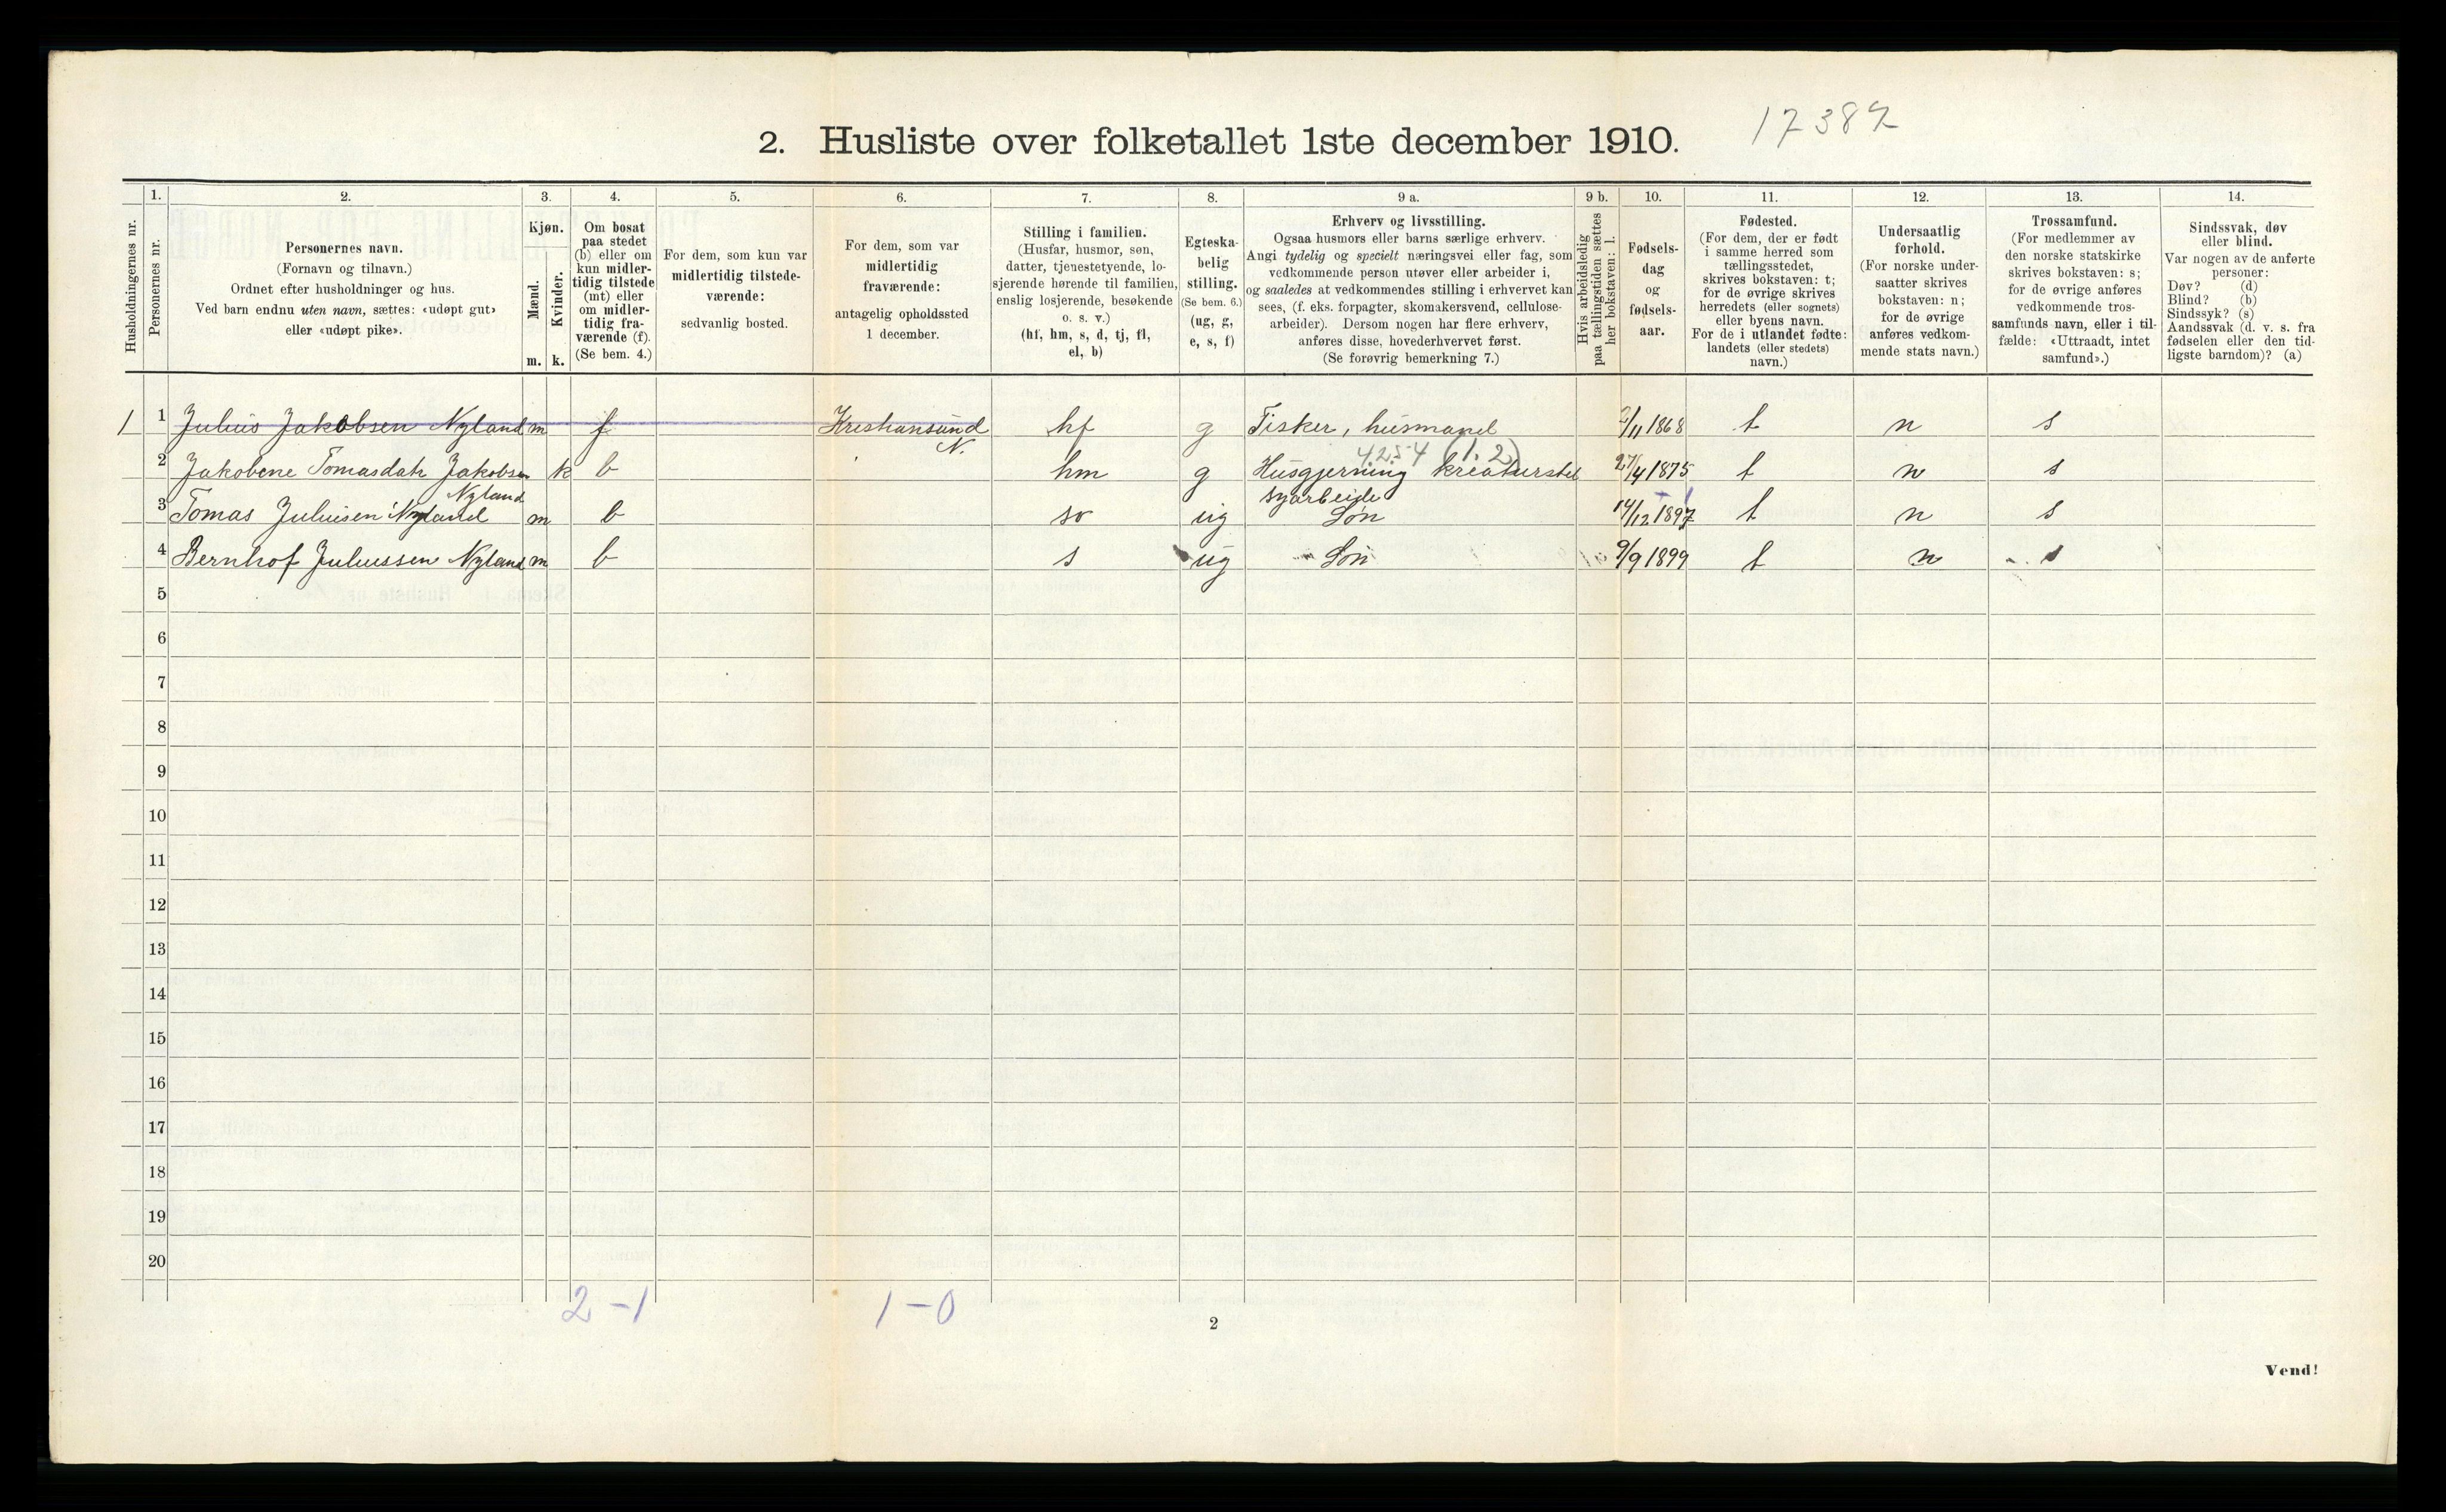 17387
2. Husliste over folketallet 1ste december 1910.
Husholdningernes nr.
1.
Personernes nr.
2.
Personernes navn.
(Fornavn og tilnavn.)
Ordnet efter husholdninger og hus.
Ved barn endnu uten navn, sættes: «udøpt gut»
eller «udøpt pike».
3.
Kjøn.
Mænd.
Kvinder.
m. k.
4.
Om bosat
paa stedet
(b) eller om
kun midler-
tidig tilstede
(mt) eller
om midler-
tidig fra-
værende (f).
(Se bem. 4.)
5.
For dem, som kun var
midlertidig tilstede-
værende:
sedvanlig bosted.
6.
For dem, som var
midlertidig
fraværende:
antagelig opholdssted
1 december.
7.
Stilling i familien.
(Husfar, husmor, søn,
datter, tjenestetyende, lo-
sjerende hørende til familien,
enslig losjerende, besøkende
o. s. v.)
(hf, hm, s, d, tj, fl,
el, b)
8.
Egteska-
belig
stilling.
(Se bem. 6.)
(ug, g,
e, s, f)
9 a.
Erhverv og livsstilling.
Ogsaa husmors eller barns særlige erhverv.
Angi tydelig og specielt næringsvei eller fag, som
vedkommende person utøver eller arbeider i,
og saaledes at vedkommendes stilling i erhvervet kan
sees, (f. eks. forpagter, skomakersvend, cellulose-
arbeider). Dersom nogen har flere erhverv,
anføres disse, hovederhvervet først.
(Se forøvrig bemerkning 7.)
9 b.
Hvis arbeidsledig
paa tællingstiden sættes
her bokstaven: l.
10.
Fødsels-
dag
og
fødsels-
aar.
11.
Fødested.
(For dem, der er født
i samme herred som
tællingsstedet,
skrives bokstaven: t;
for de øvrige skrives
herredets (eller sognets)
eller byens navn.
For de i utlandet fødte:
landets (eller stedets)
navn.)
12.
Undersaatlig
forhold.
(For norske under-
saatter skrives
bokstaven: n;
for de øvrige
anføres vedkom-
mende stats navn.)
13.
Trossamfund.
(For medlemmer av
den norske statskirke
skrives bokstaven: s;
for de øvrige anføres
vedkommende tros-
samfunds navn, eller i til-
fælde: «Uttraadt, intet
samfund».)
14.
Sindssvak, døv
eller blind.
Var nogen av de anførte
personer:
Døv? (d)
Blind? (b)
Sindssyk? (s)
Aandssvak (d. v. s. fra
fødselen eller den tid-
ligste barndom)? (a)
1 1 Julius Jakobsen Nyland m f Kristiansund N. hf g Fisker, husmand 2/11 1868 t n s
4254 (1.2)
2 Jakobene Tomasdatr Jakobsen Nyland k b hm g Husgjerning kreaturstel syarbeide 27/4 1875 t n s
3 Tomas Juliusen Nyland m b sø ug Søn 14/12 1897 t n s
4 Bernhof Juliussen Nyland m b s ug Søn 9/9 1899 t n s
5
6
7
8
9
10
11
12
13
14
15
16
17
18
19
20
2-1 1-0
2
Vend!